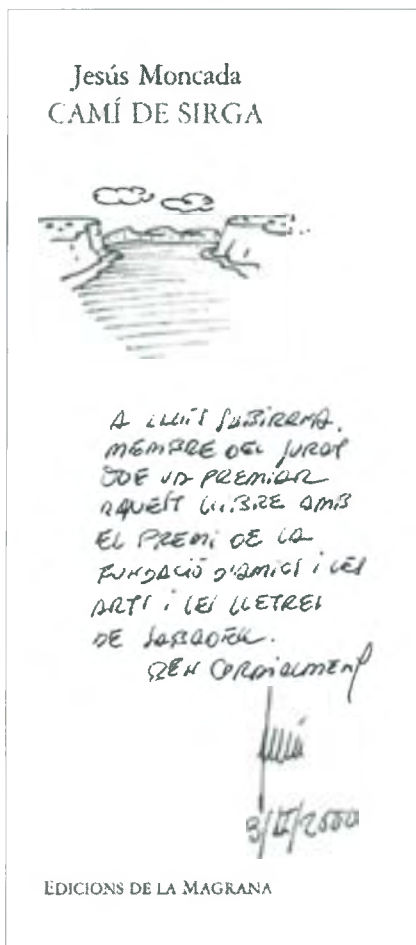 Jesús Moncada
CAMÍ DE SIRGA
A LLUÍS SUBIRANA,
MEMBRE DEL JURAT
QUE VA PREMIAR
AQUEST LLIBRE AMB
EL PREMI DE LA
FUNDACIÓ D'AMICS I LES
ARTS I LES LLETRES
DE SABADELL.
BEN CORDIALMENT
3/II/2000
EDICIONS DE LA MAGRANA